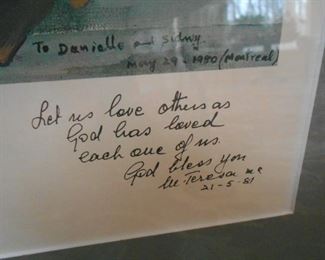 To Danielle and Sidny
May 29 - 1980 (Montreal)
Let us love others as
God has loved
each one of us.
God bless you
M. Teresa mc
21-5-81